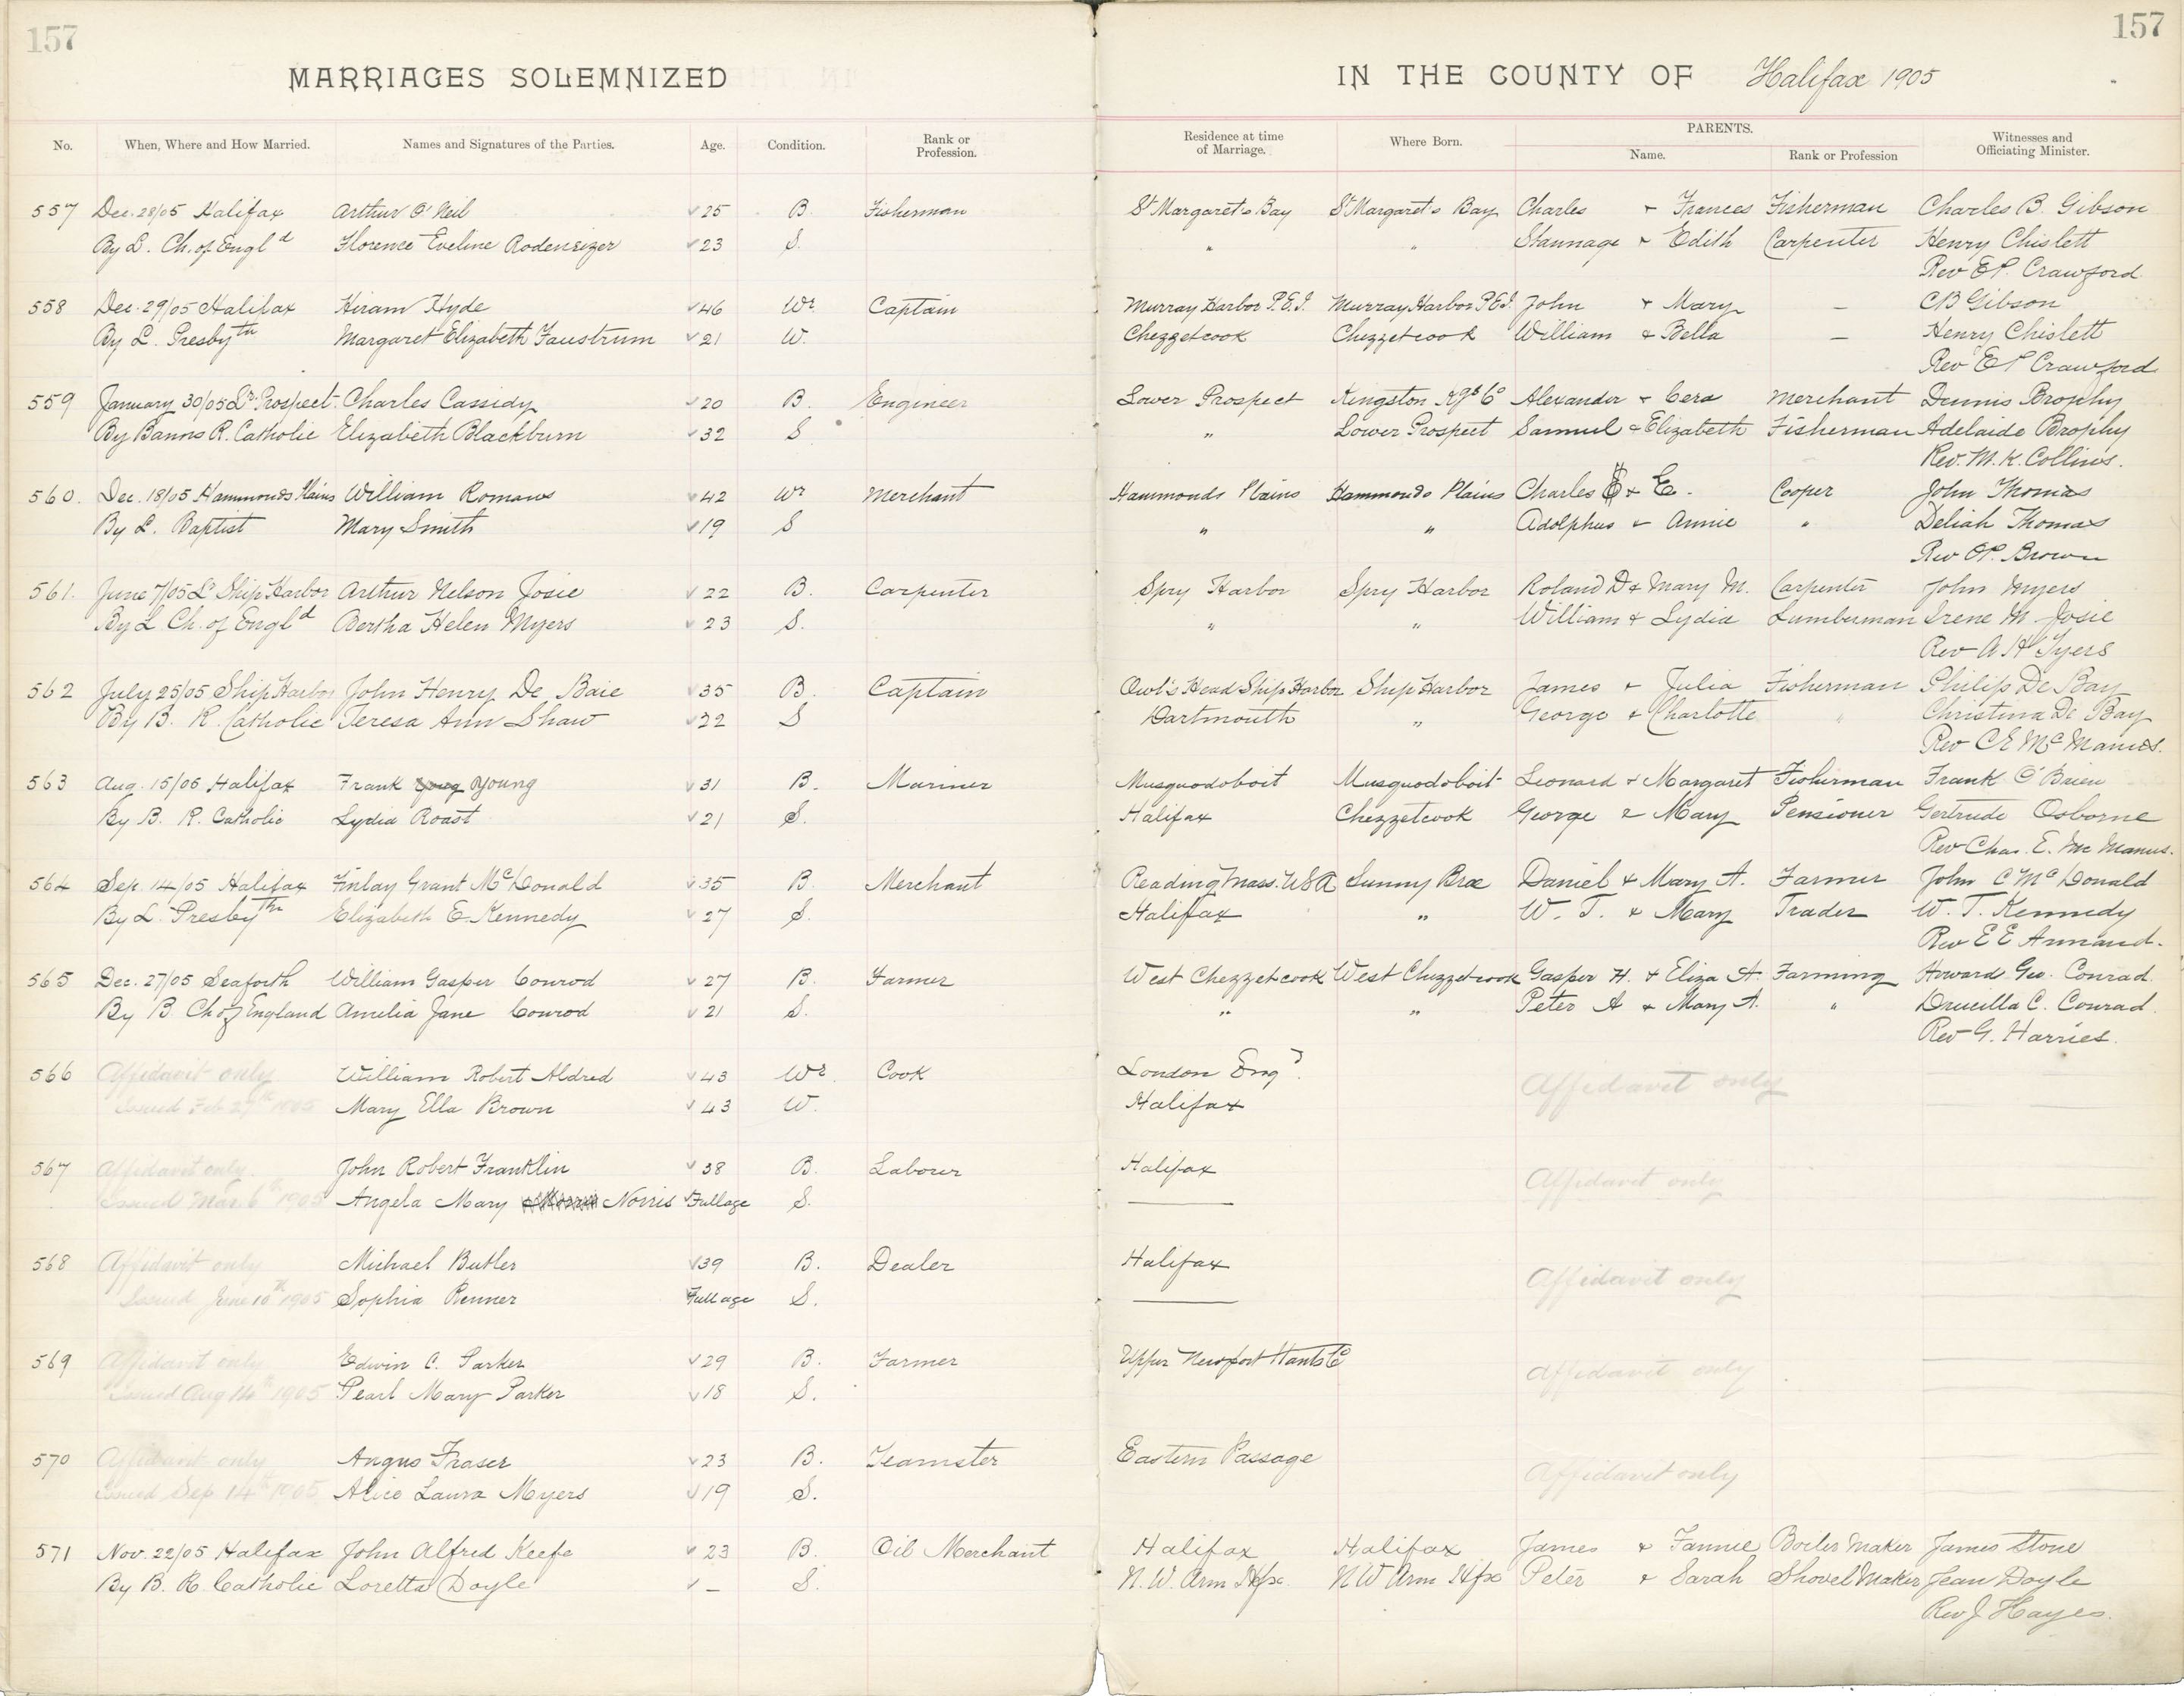 157 157
MARRIAGES SOLEMNIZED IN THE COUNTY OF Halifax 1905
No. When, Where and How Married. Names and Signatures of the Parties. Age. Condition. Rank or Profession. Residence at time of Marriage. Where Born. PARENTS. Name. Rank or Profession Witnesses and Officiating Minister.
557 Dec. 28/05 Halifax Arthur O'Neil 25 B. Fisherman St Margaret's Bay St Margaret's Bay Charles + Frances Fisherman Charles B. Gibson
By L. Ch. of Engld Florence Eveline Rodeneizer 23 S. " " Stannage + Edith Carpenter Henry Chislett
Rev E P. Crawford
558 Dec. 29/05 Halifax Hiram Hyde 46 Wr. Captain Murray Harbor P.E.I. Murray Harbor P.E.I John + Mary — CB Gibson
By L. Presbytn Margaret Elizabeth Faustrum 21 W. Chezzetcook Chezzetcook William + Bella — Henry Chislett
Rev E P Crawford
559 January 30/05 Lr. Prospect Charles Cassidy 20 B. Engineer Lower Prospect Kingston Kgs Co Alexander + Cera Merchant Dennis Brophy
By Banns R. Catholic Elizabeth Blackburn 32 S " Lower Prospect Samuel + Elizabeth Fisherman Adelaide Brophy
Rev. M. K. Collins.
560. Dec. 18/05 Hammonds Plains William Romans 42 Wr Merchant Hammonds Plains Hammonds Plains Charles E + E. Cooper John Thomas
By L. Baptist Mary Smith 19 S " " Adolphus + Annie " Deliah Thomas
Rev OP. Brown
561. June 7/05 Lr Ship Harbor Arthur Nelson Josie 22 B. Carpenter Spry Harbor Spry Harbor Roland D + Mary M. Carpenter John Myers
By L Ch. of Engld Bertha Helen Myers 23 S. " " William + Lydia Lumberman Irene M Josie
Rev A H Tyers
562 July 25/05 Ship Harbor John Henry De Baie 35 B. Captain Owl's Head Ship Harbor Ship Harbor James + Julia Fisherman Philip De Bay
By B. R. Catholic Teresa Ann Shaw 22 S Dartmouth " George + Charlotte " Christina De Bay
Rev C E McManus.
563 Aug. 15/05 Halifax Frank Young 31 B. Mariner Musquodoboit Musquodoboit Leonard + Margaret Fisherman Frank O'Brien
By B. R. Catholic Lydia Roast 21 S. Halifax Chezzetcook George + Mary Pensioner Gertrude Osborne
Rev Chas. E. McManus.
564 Sep. 14/05 Halifax Finlay Grant McDonald 35 B. Merchant Reading Mass. USA Sunny Brae Daniel + Mary A. Farmer John C McDonald
By L. Presbytn Elizabeth E. Kennedy 27 S. Halifax " W. T. + Mary Trader W. T. Kennedy
Rev E E Annand.
565 Dec. 27/05 Seaforth William Gasper Conrod 27 B. Farmer West Chezzetcook West Chezzetcook Gasper H. + Eliza A. Farming Howard Geo. Conrad
By B. Ch of England Amelia Jane Conrod 21 S. " " Peter A + Mary A. " Drucilla C. Conrad
Rev G. Harries.
566 Affidavit only William Robert Aldred 43 Wr. Cook London Engd. Affidavit only
Issued Feb 27th 1905 Mary Ella Brown 43 W. Halifax
567 Affidavit only. John Robert Franklin 38 B. Laborer Halifax Affidavit only
Issued Mar. 6th 1905 Angela Mary Norris Fullage S. —
568 Affidavit only Michael Butler 39 B. Dealer Halifax Affidavit only
Issued June 10th 1905 Sophia Renner Full age S. —
569 Affidavit only Edwin C. Parker 29 B. Farmer Upper Newport Hants Co Affidavit only
Issued Aug 14th 1905 Pearl Mary Parker 18 S.
570 Affidavit only Angus Fraser 23 B. Teamster Eastern Passage Affidavit only
Issued Sep 14th 1905 Alice Laura Myers 19 S.
571 Nov. 22/05 Halifax John Alfred Keefe 23 B. Oil Merchant Halifax Halifax James + Fannie Boiler Maker James Stone
By B. R. Catholic Loretta Doyle — S. N. W. Arm Hfx. N W Arm Hfx Peter + Sarah Shovel Maker Jean Doyle
Rev J Hayes.